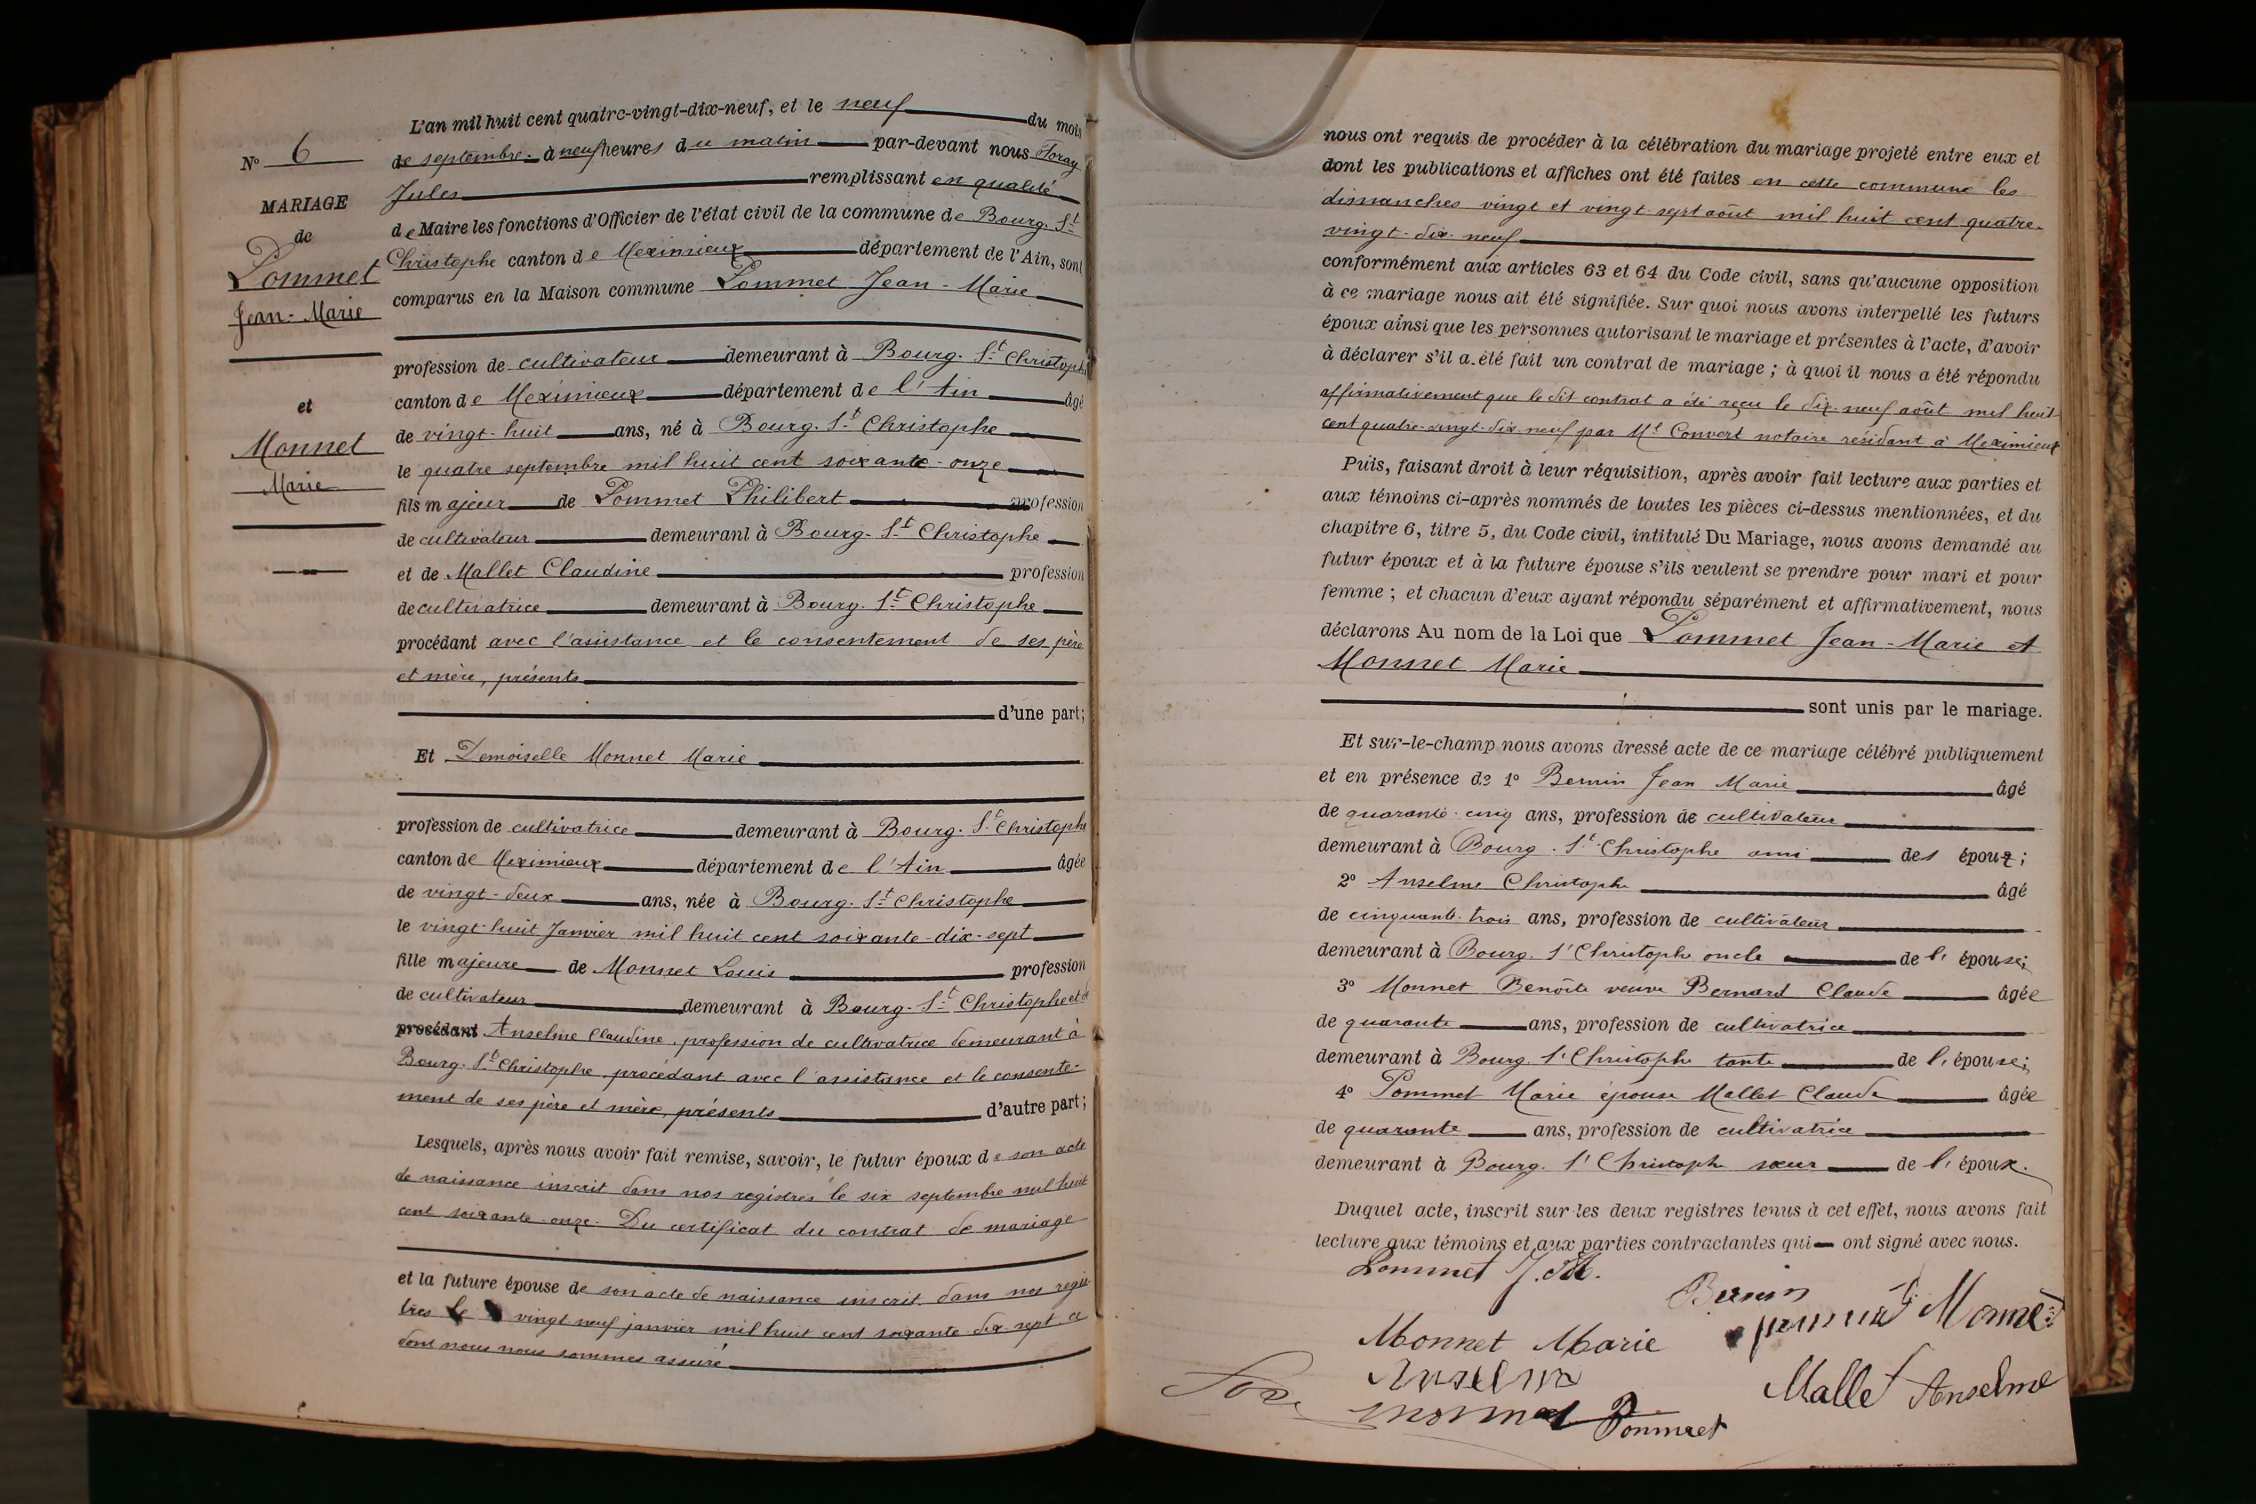 N° 6
MARIAGE
de
Pommet
Jean-Marie
et
Monnet
Marie
L'an mil huit cent quatre-vingt-dix-neuf, et le neuf du mois
de septembre à neuf heures du matin par-devant nous Foray
Jules remplissant en qualité
de Maire les fonctions d'Officier de l'état civil de la commune de Bourg-St
Christophe canton de Meximieux département de l'Ain, sont
comparus en la Maison commune Pommet Jean-Marie
profession de cultivateur demeurant à Bourg-St Christophe
canton de Meximieux département de l'Ain âgé
de vingt-huit ans, né à Bourg-St Christophe
le quatre septembre mil huit cent soixante-onze
fils majeur de Pommet Philibert profession
de cultivateur demeurant à Bourg-St Christophe
et de Mallet Claudine profession
de cultivatrice demeurant à Bourg-St Christophe
procédant avec l'assistance et le consentement de ses père
et mère, présents
d'une part;
Et Demoiselle Monnet Marie
profession de cultivatrice demeurant à Bourg-St Christophe
canton de Meximieux département de l'Ain âgée
de vingt-deux ans, née à Bourg-St Christophe
le vingt-huit Janvier mil huit cent soixante-dix-sept
fille majeure de Monnet Louis profession
de cultivateur demeurant à Bourg-St Christophe et d
procédant Anselme Claudine, profession de cultivatrice demeurant à
Bourg-St Christophe, procédant avec l'assistance et le consente-
ment de ses père et mère, présents d'autre part;
Lesquels, après nous avoir fait remise, savoir, le futur époux de son acte
de naissance inscrit dans nos registres le six septembre mil huit
cent soixante-onze. Du certificat du contrat de mariage
et la future épouse de son acte de naissance inscrit dans nos regis-
tres le vingt neuf janvier mil huit cent soixante dix sept ce
dont nous nous sommes assuré
nous ont requis de procéder à la célébration du mariage projeté entre eux et
dont les publications et affiches ont été faites en cette commune les
dimanches vingt et vingt-sept août mil huit cent quatre-
vingt-dix-neuf
conformément aux articles 63 et 64 du Code civil, sans qu'aucune opposition
à ce mariage nous ait été signifiée. Sur quoi nous avons interpellé les futurs
époux ainsi que les personnes autorisant le mariage et présentes à l'acte, d'avoir
à déclarer s'il a été fait un contrat de mariage; à quoi il nous a été répondu
affirmativement que le dit contrat a été reçu le dix-neuf août mil huit
cent quatre-vingt-dix-neuf par Mt Convert notaire résidant à Meximieux
Puis, faisant droit à leur réquisition, après avoir fait lecture aux parties et
aux témoins ci-après nommés de toutes les pièces ci-dessus mentionnées, et du
chapitre 6, titre 5, du Code civil, intitulé Du Mariage, nous avons demandé au
futur époux et à la future épouse s'ils veulent se prendre pour mari et pour
femme; et chacun d'eux ayant répondu séparément et affirmativement, nous
déclarons Au nom de la Loi que Pommet Jean-Marie et
Monnet Marie
sont unis par le mariage.
Et sur-le-champ nous avons dressé acte de ce mariage célébré publiquement
et en présence de 1° Bernin Jean Marie âgé
de quarante-cinq ans, profession de cultivateur
demeurant à Bourg-St Christophe ami des époux;
2° Anselme Christophe âgé
de cinquante-trois ans, profession de cultivateur
demeurant à Bourg-St Christophe oncle de l' épouse;
3° Monnet Benoîte veuve Bernard Claude âgée
de quarante ans, profession de cultivatrice
demeurant à Bourg-St Christophe tante de l' épouse;
4° Pommet Marie épouse Mallet Claude âgée
de quarante ans, profession de cultivatrice
demeurant à Bourg-St Christophe sœur de l' époux.
Duquel acte, inscrit sur les deux registres tenus à cet effet, nous avons fait
lecture aux témoins et aux parties contractantes qui ont signé avec nous.
Pommet J.M.
Bernin
Monnet
Monnet Marie
Anselme
Mallet Anselme
Monnet Pommet